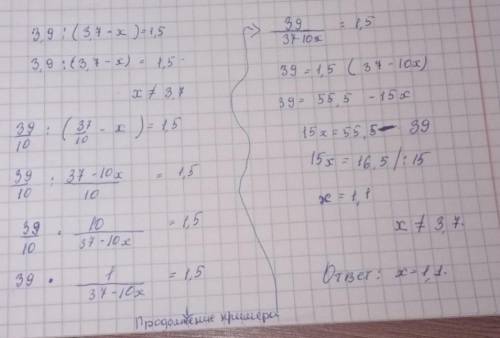 3,9 : (3,7 - x) = 1,5
3,9 : (3,7 - x) = 1,5
x ≠ 3,7
39/10 : (37/10 - x) = 1,5
39/10 : (37-10x)/10 = 1,5
39/10 · 10/(37-10x) = 1,5
39 · 1/(37-10x) = 1,5
Продолжение примера
39/(37-10x) = 1,5
39 = 1,5 (37-10x)
39 = 55,5 - 15x
15x = 55,5 - 39
15x = 16,5 / : 15
x = 1,1
x ≠ 3,7.
Ответ: x = 1,1.